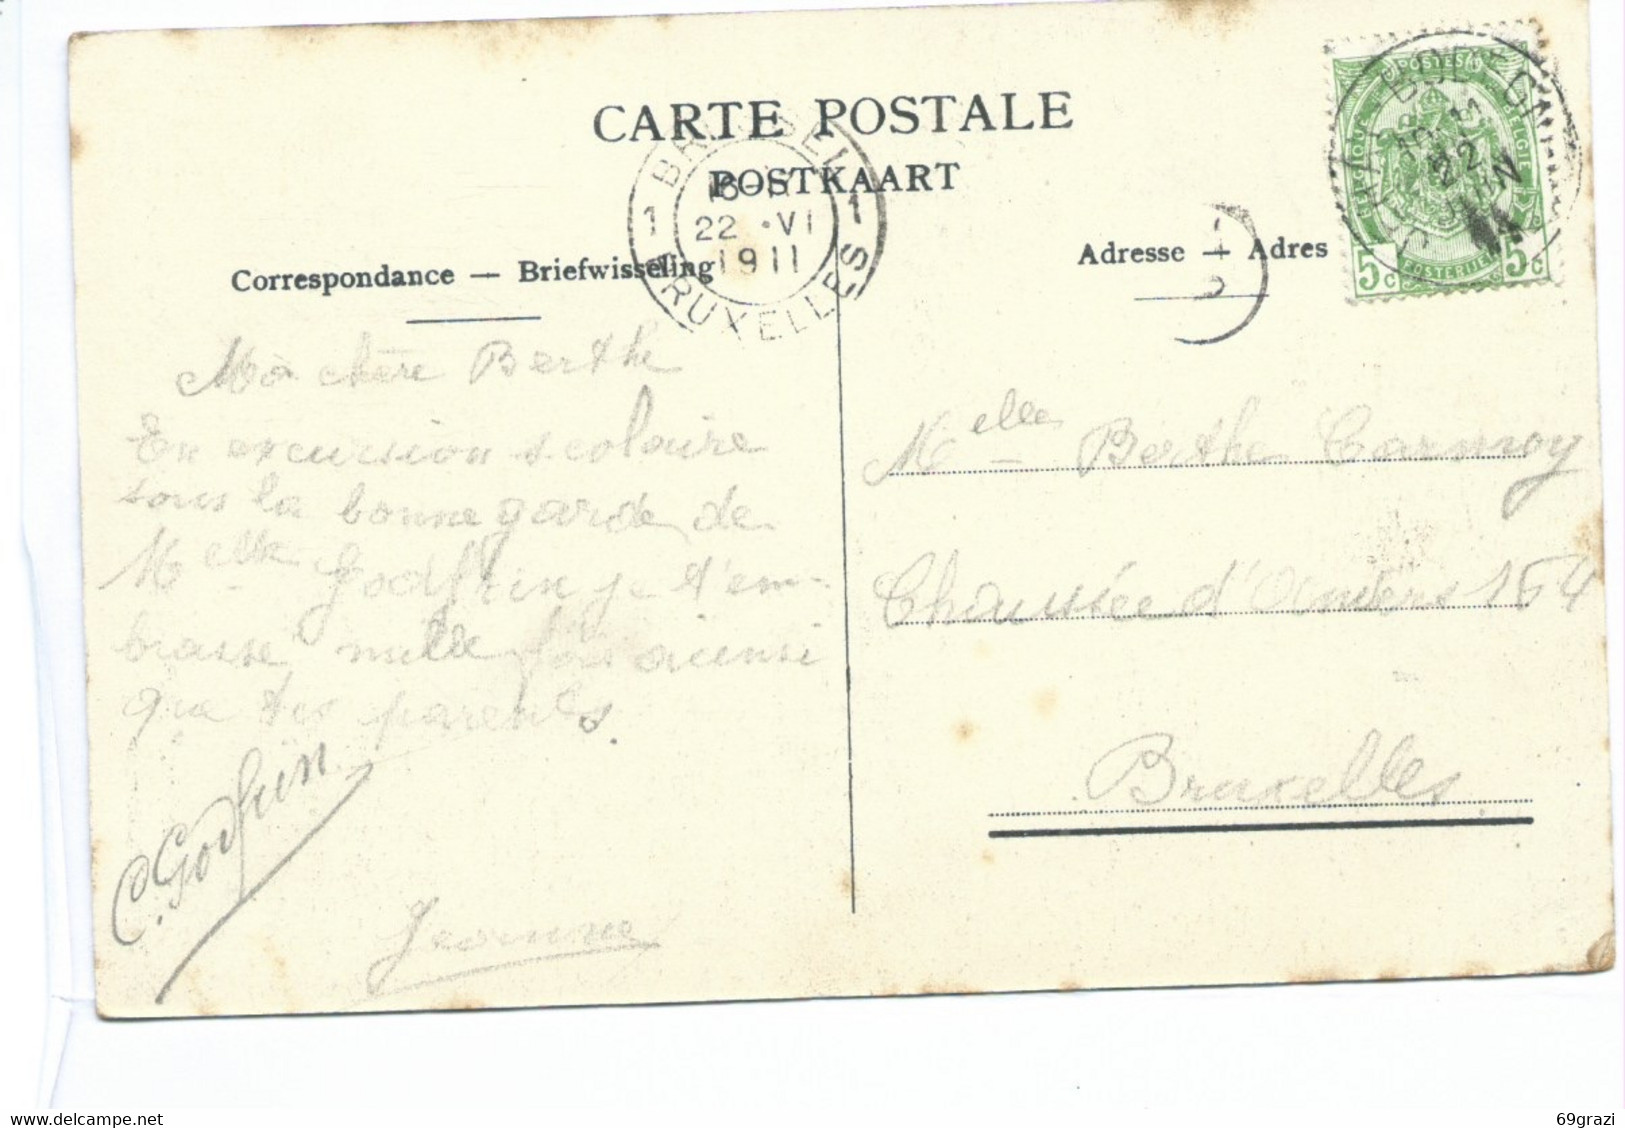 CARTE POSTALE
POSTKAART
Correspondance — Briefwisseling
Adresse — Adres
BRUSSEL
1 22 · VI 1
1911
BRUXELLES
POSTES
BELGIQUE BELGIË
22 JUIN
POSTERIJEN
5c 5c
Ma chère Berthe
En excursion scolaire
sous la bonne garde de
Melle Godfrin je t'em-
brasse mille fois ainsi
que tes parents.
C. Godfrin
Jeanne
Melle Berthe Carnoy
Chaussée d'Anvers 154
Bruxelles
69grazi